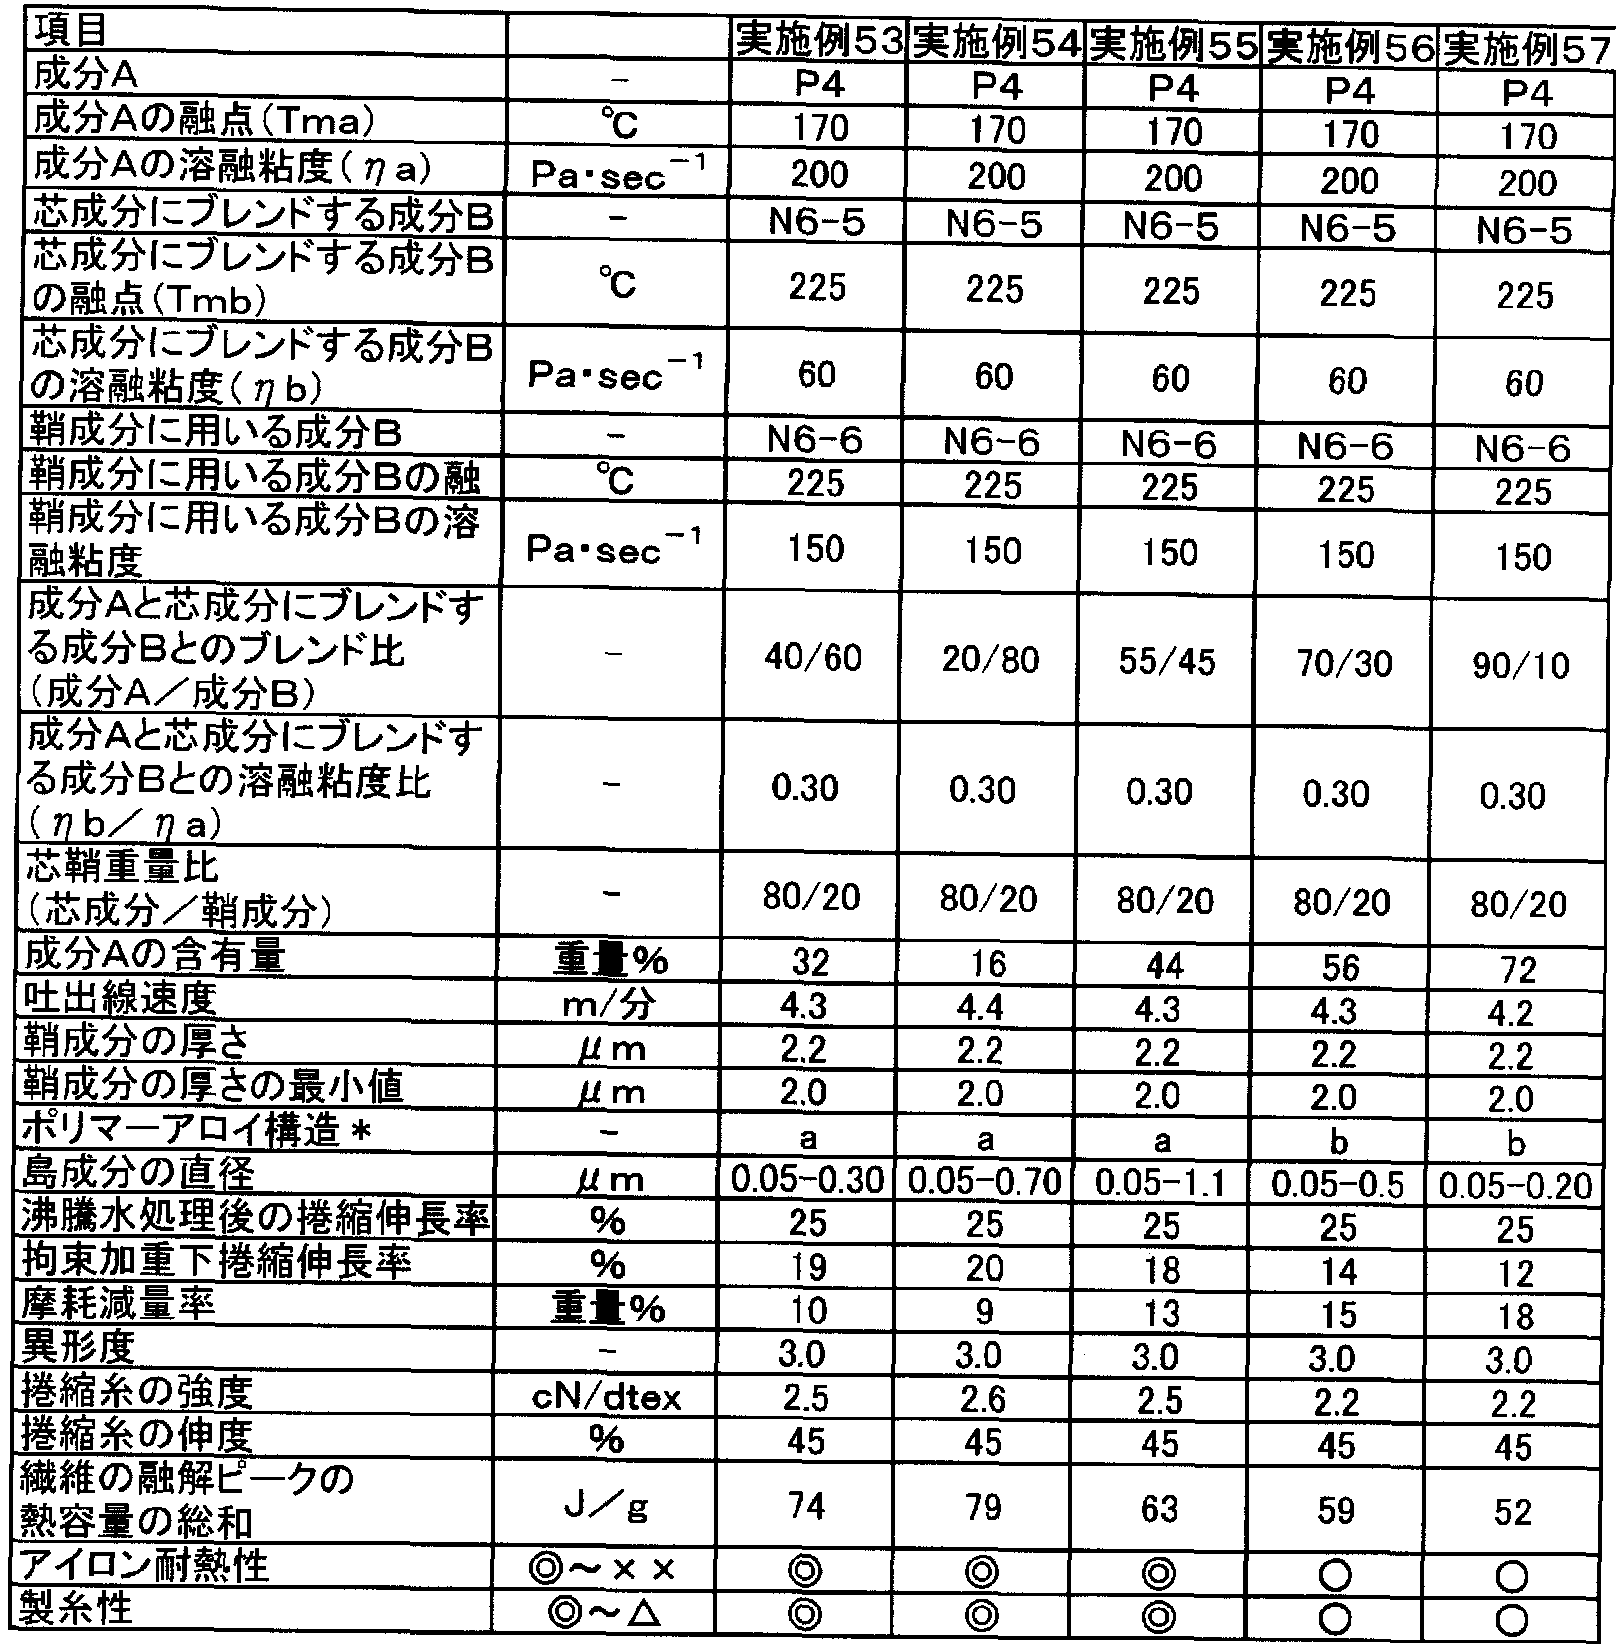 項目 実施例53 実施例54 実施例55 実施例56 実施例57
成分A - P4 P4 P4 P4 P4
成分Aの融点(Tma) ℃ 170 170 170 170 170
成分Aの溶融粘度(ηa) Pa・sec⁻¹ 200 200 200 200 200
芯成分にブレンドする成分B - N6-5 N6-5 N6-5 N6-5 N6-5
芯成分にブレンドする成分B
の融点(Tmb) ℃ 225 225 225 225 225
芯成分にブレンドする成分B
の溶融粘度(ηb) Pa・sec⁻¹ 60 60 60 60 60
鞘成分に用いる成分B - N6-6 N6-6 N6-6 N6-6 N6-6
鞘成分に用いる成分Bの融 ℃ 225 225 225 225 225
鞘成分に用いる成分Bの溶
融粘度 Pa・sec⁻¹ 150 150 150 150 150
成分Aと芯成分にブレンドす
る成分Bとのブレンド比 - 40/60 20/80 55/45 70/30 90/10
(成分A/成分B)
成分Aと芯成分にブレンドす
る成分Bとの溶融粘度比 - 0.30 0.30 0.30 0.30 0.30
(ηb/ηa)
芯鞘重量比
(芯成分/鞘成分) - 80/20 80/20 80/20 80/20 80/20
成分Aの含有量 重量% 32 16 44 56 72
吐出線速度 m/分 4.3 4.4 4.3 4.3 4.2
鞘成分の厚さ μm 2.2 2.2 2.2 2.2 2.2
鞘成分の厚さの最小値 μm 2.0 2.0 2.0 2.0 2.0
ポリマーアロイ構造* - a a a b b
島成分の直径 μm 0.05-0.30 0.05-0.70 0.05-1.1 0.05-0.5 0.05-0.20
沸騰水処理後の捲縮伸長率 % 25 25 25 25 25
拘束加重下捲縮伸長率 % 19 20 18 14 12
摩耗減量率 重量% 10 9 13 15 18
異形度 - 3.0 3.0 3.0 3.0 3.0
捲縮糸の強度 cN/dtex 2.5 2.6 2.5 2.2 2.2
捲縮糸の伸度 % 45 45 45 45 45
繊維の融解ピークの
熱容量の総和 J/g 74 79 63 59 52
アイロン耐熱性 ◎~×× ◎ ◎ ◎ ○ ○
製糸性 ◎~△ ◎ ◎ ◎ ○ ○